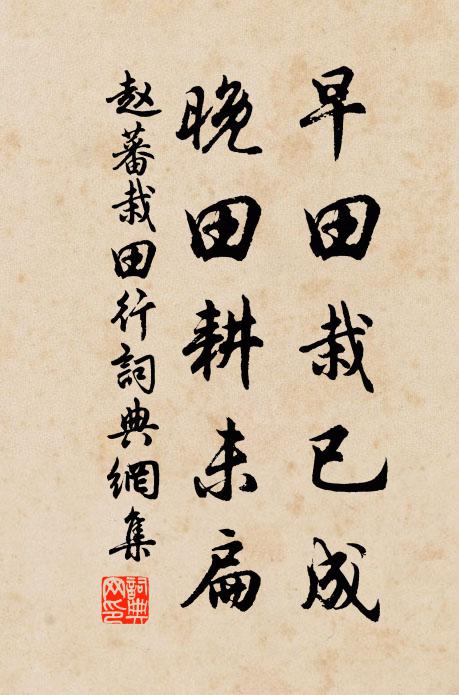 早田栽已成
晚田耕未扁
赵蕃栽田行詞典網集
詞典網印